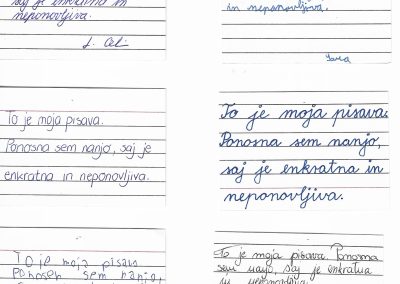 saj je enkratna in
neponovljiva.
in neponovljiva.
Sara
To je moja pisava.
Ponosna sem nanjo, saj je
enkratna in neponovljiva.
To je moja pisava.
Ponosna sem nanjo,
saj je enkratna in
neponovljiva.
To je moja pisava
Ponosen sem nanjo,
To je moja pisava. Ponosna
sem nanjo, saj je enkratna
in neponovljiva